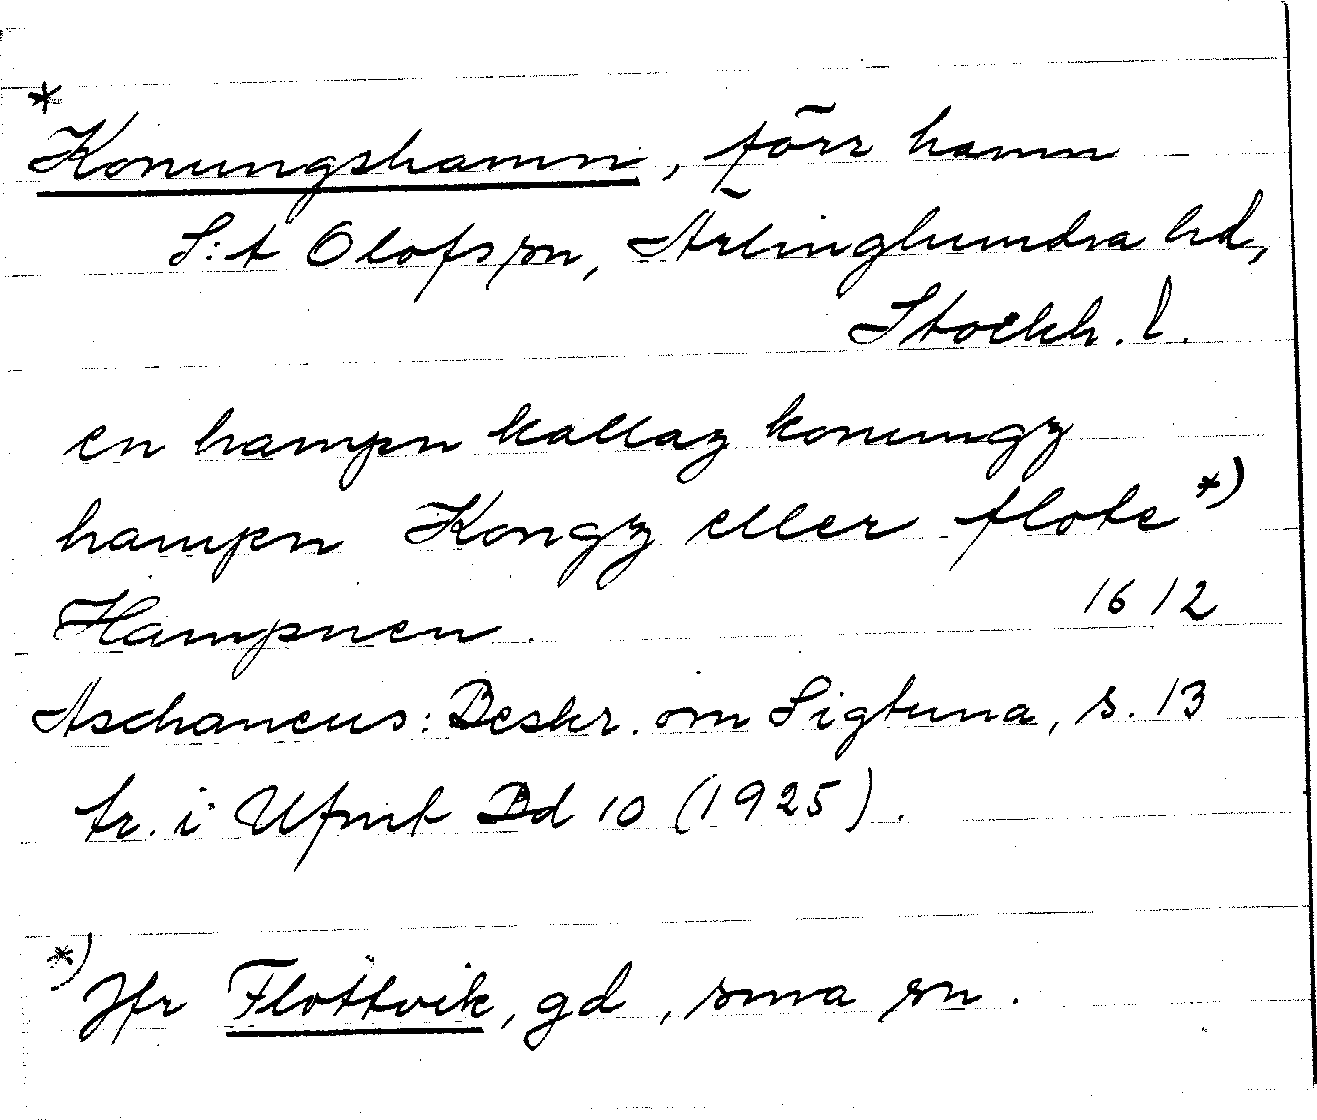 *
Konungshamn, förr hamn
S:t Olofs sn, Ärlinghundra hd,
Stockh. l.
en hampn kallaz konungz
hampn Kongz eller flote *)
Hampnen. 1612
Aschaneus: Beskr. om Sigtuna, s. 13
tr. i Ufmt Bd 10 (1925).
*) Jfr Flottvik, gd, sma sn.